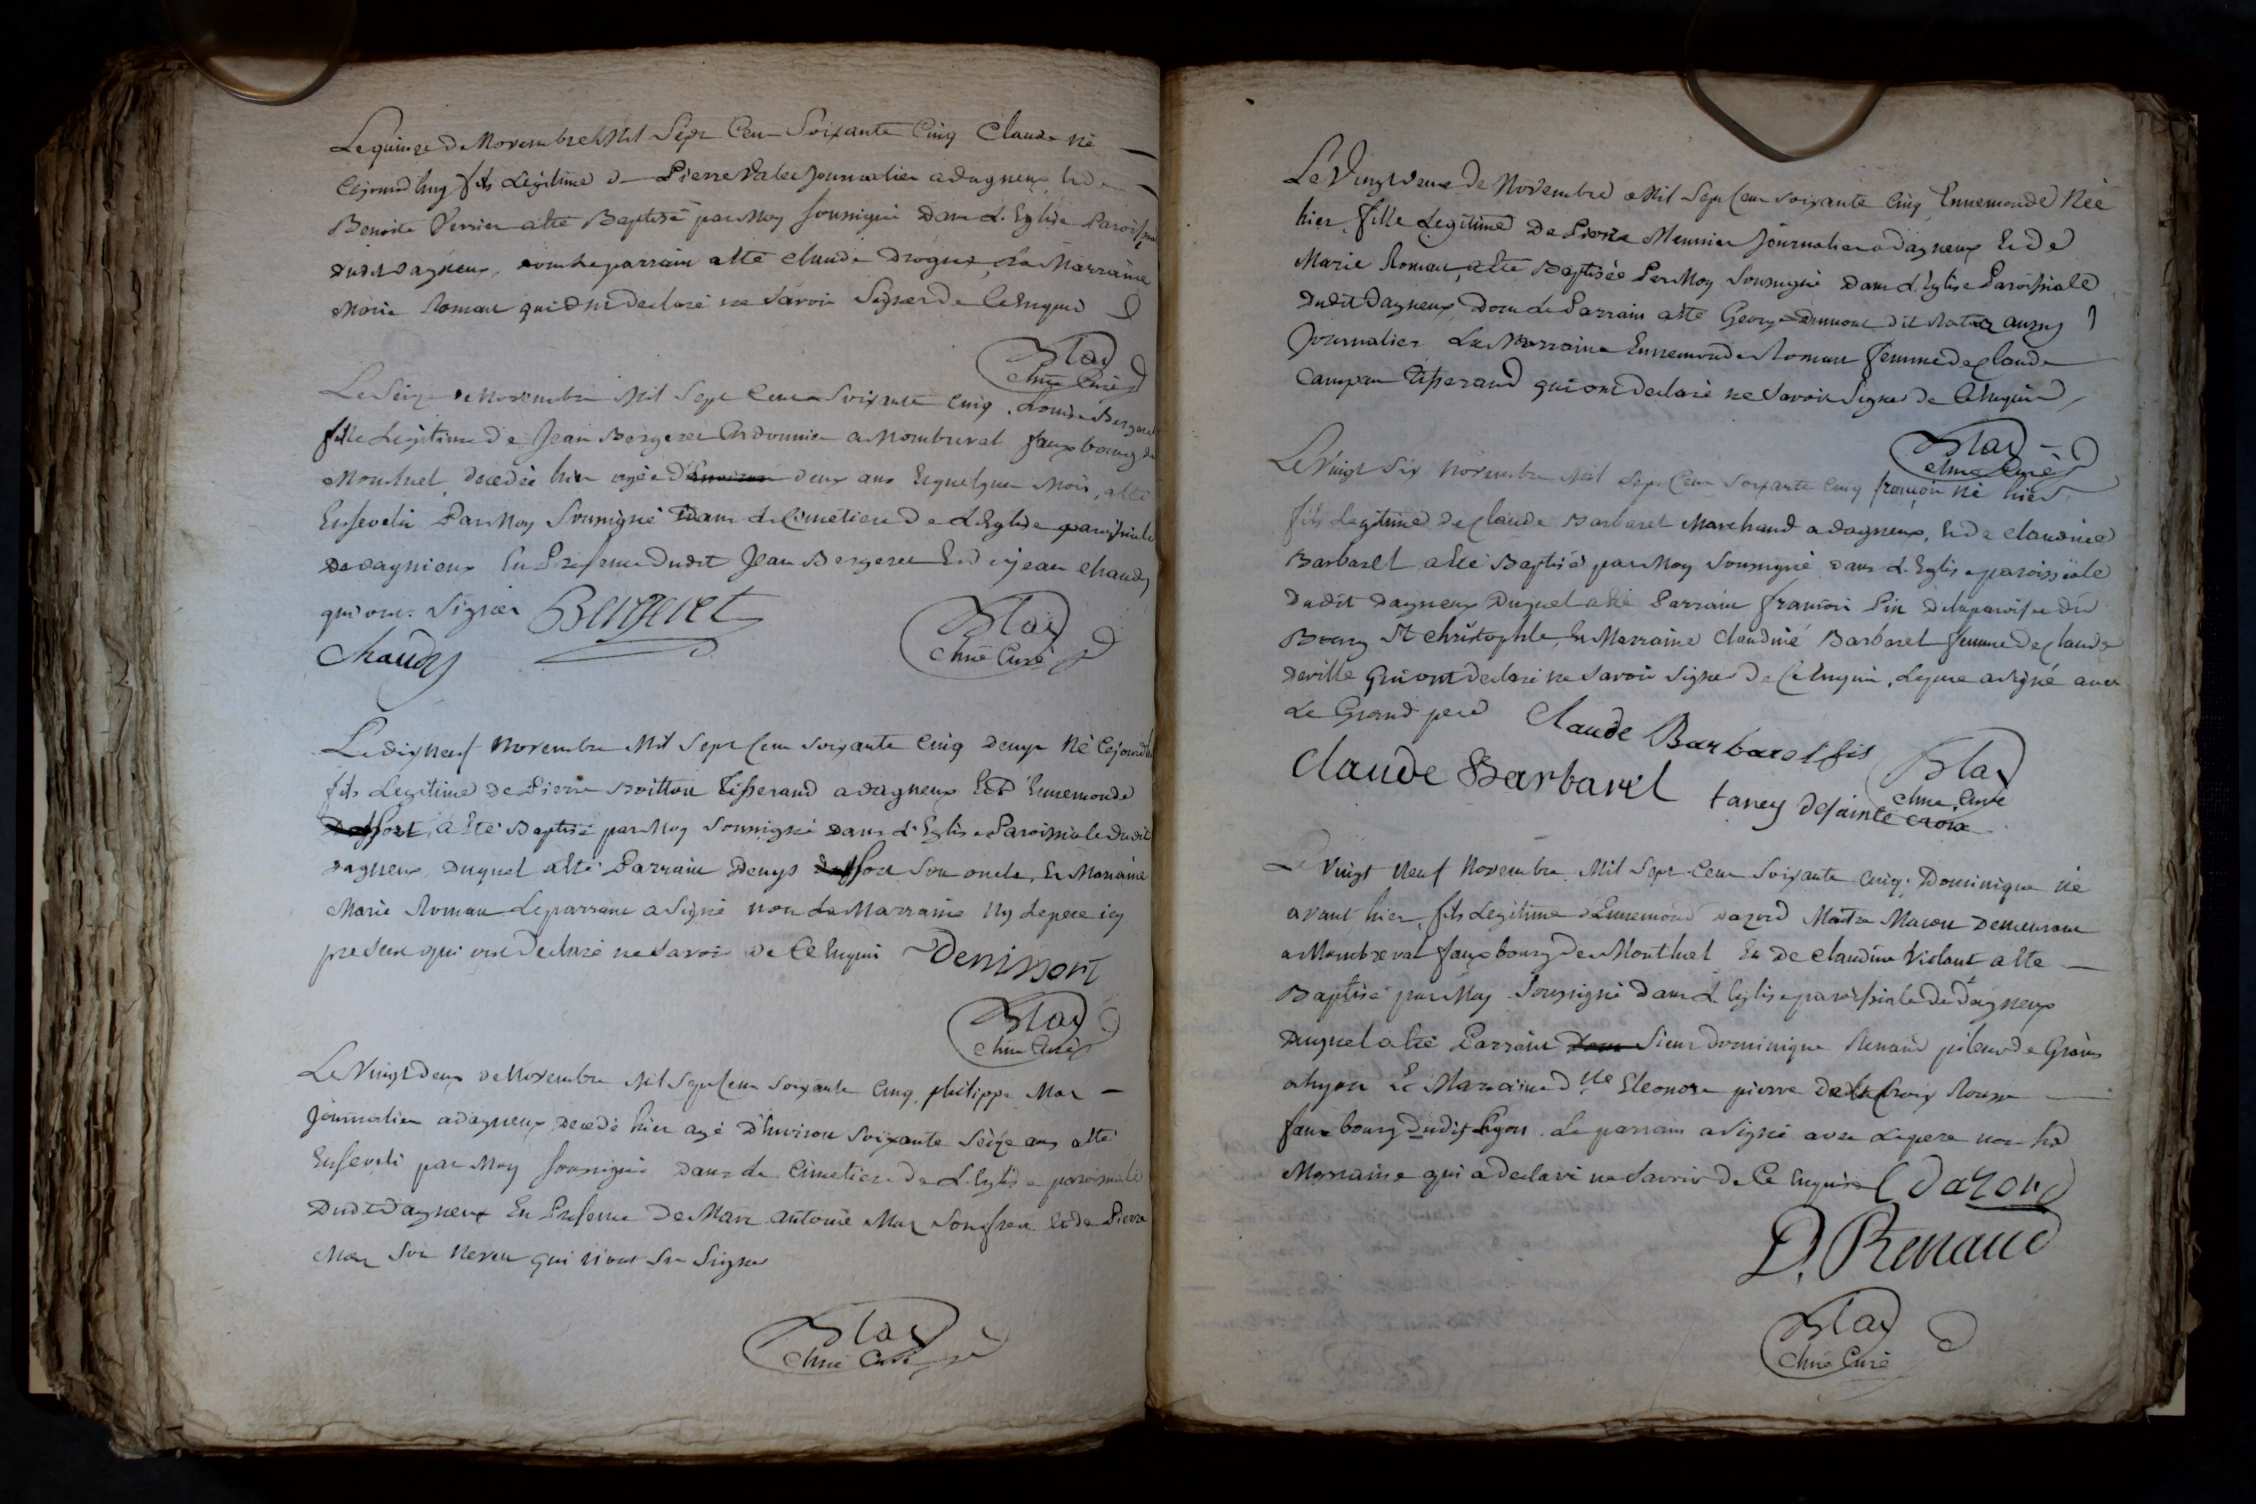 Le quinze de Novembre Mil Sept Cent Soixante Cinq Claude né
Cejourdhuy fils Légitime de Pierre Valee Journalier a dagneux et de
Benoite Verrier a été Baptisé par Moy soussigné dans L'Eglise Paroissiale
dudit dagneux, dont le parrain a été Claude Droguet La Marraine
Marie Roman qui ont déclaré ne Savoir Signer de ce Enquis
Blad
Chne Curé
Le Seize de Novembre Mil Sept Cent Soixante Cinq. Louise Bergeret
fille Légitime de Jean Bergeret Cordonnier a Montbreval fauxbourg de
Montluel, décédée hier agée d'environ deux ans et quelques Mois, a été
Ensevelie Par Moy Soussigné dans Le Cimetiere de L'Eglise paroissiale
de dagnieux En Présence dudit Jean Bergeret Et de jean Chaudy
qui ont Signés Bergeret
Chaudy
Blad
Chne Curé
Le dix neuf Novembre Mil Sept Cent Soixante Cinq Denys Né Cejourdhui
fils Légitime de Pierre Boitton Tisserand a dagneux Et d'Ennemonde
Dessort, a été Baptisé par Moy Soussigné dans L'Eglise Paroissiale dudit
dagneux, duquel a été Parrain Denys Dessort Son oncle, Et Marraine
Marie Roman Le parrain a Signé non La Marraine Ny Le pere icy
present qui ont déclaré ne Savoir de Ce Enquis Denissort
Blad
Chne Curé
Le Vingt deux de Novembre Mil Sept Cent Soixante Cinq, philippe Mar
Journalier a dagneux décédé hier agé d'Environ Soixante Seize ans a été
Enseveli par Moy soussigné dans Le Cimetiere de L'Eglise paroissiale
dudit dagneux En Présence De Marc Antoine Mar Son frere Et de Pierre
Mar Son Neveu qui n'ont Su Signer
Blad
Chne Curé
Le Vingt deux de Novembre Mil Sept Cent Soixante Cinq, Ennemonde Née
hier, fille Légitime de Pierre Meunier Journalier a dagneux Et de
Marie Roman, a été Baptisée Par Moy Soussigné dans L'Eglise Paroissiale
dudit dagneux, Dont Le Parrain a été George Dumont dit aussy
Journalier La Marraine Ennemonde Roman femme de Claude
Tisserand qui ont déclaré ne Savoir Signer de Ce Enquis
Blad
Chne Curé
Le Vingt Six Novembre Mil Sept Cent Soixante Cinq françois né hier
fils Légitime de Claude Barbaret Marchand a dagneux, Et de Claudine
Barbaret a été Baptisé par Moy Soussigné dans L'Eglise paroissiale
dudit dagneux Duquel a été Parrain françois Pin de la paroisse du
Bourg St Christophle, Et Marraine Claudine Barbaret femme de Claude
Deville Qui ont déclaré ne Savoir Signer de Ce Enquis, Le pere a Signé avec
Le Grand pere Claude Barbaret fils
Claude Barbaret
taney de sainte croix
Blad
Chne Curé
Le Vingt Neuf Novembre Mil Sept Cent Soixante Cinq. Dominique né
avant hier, fils Légitime d'Ennemond Dazord Maitre Macon Demeurant
a Montbreval fauxbourg de Montluel Et de Claudine Violant a été
Baptisé par Moy Soussigné dans L'Eglise paroissiale de Dagneux
Duquel a été Parrain Sieur Dominique Renaud pileur de Grains
a Lyon Et Marraine Dlle Eleonore pierre de la Croix Rousse
faux bourg dudit Lyon. Le parrain a Signé avec Le pere non La
Marraine qui a déclaré ne Savoir de Ce Enquise E Dazord
D. Renaud
Blad
Chne Curé